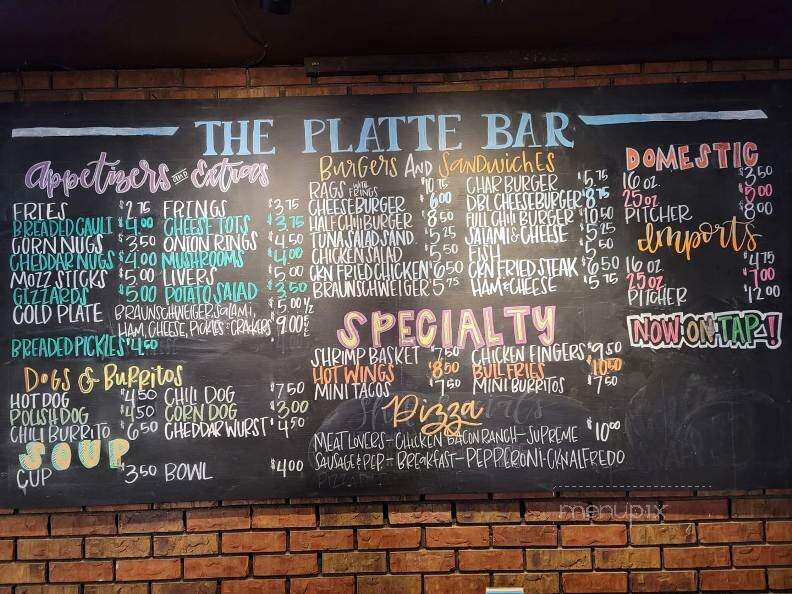 THE PLATTE BAR
Appetizers AND Extras
FRIES $2.75 FRINGS $3.75
BREADED CAULI $4.00 CHEESE TOTS $3.75
CORN NUGS $3.50 ONION RINGS $4.50
CHEDDAR NUGS $4.00 MUSHROOMS $4.00
MOZZ STICKS $5.00 LIVERS $5.00
GIZZARDS $5.00 POTATO SALAD $3.50
COLD PLATE BRAUNSCHWEIGER, SALAMI, $5.00 1/2
HAM, CHEESE, PICKLES & CRAKERS $9.00
BREADED PICKLES $4.50
DOGS & BURRITOS
HOT DOG $4.50 CHILI DOG $7.50
POLISH DOG $4.50 CORN DOG $3.00
CHILI BURRITO $6.50 CHEDDARWURST $4.50
SOUP
CUP $3.50 BOWL $4.00
BURGERS AND SANDWICHES
RAGS WITH FRINGS $10.75 CHAR BURGER $5.75
CHEESEBURGER $6.00 DBL CHEESEBURGER $8.75
HALF CHILI BURGER $8.50 FULL CHILI BURGER $10.50
TUNA SALAD SAND. $5.25 SALAMI & CHEESE $5.25
CHICKEN SALAD $5.50 FISH $5.50
CKN FRIED CHICKEN $6.50 CKN FRIED STEAK $6.50
BRAUNSCHWEIGER $5.75 HAM & CHEESE $5.75
SPECIALTY
SHRIMP BASKET $7.50 CHICKEN FINGERS $9.50
HOT WINGS $8.50 BULL FRIES $10.50
MINI TACOS $7.50 MINI BURRITOS $7.50
Pizza
MEAT LOVERS - CHICKEN BACON RANCH - SUPREME $10.00
SAUSAGE & PEP - BREAKFAST - PEPPERONI - CKN ALFREDO
DOMESTIC
16 oz. $3.50
25 oz. $5.00
PITCHER $8.00
Imports
16 oz. $4.75
25 oz. $7.00
PITCHER $12.00
NOW ON TAP!
menupix